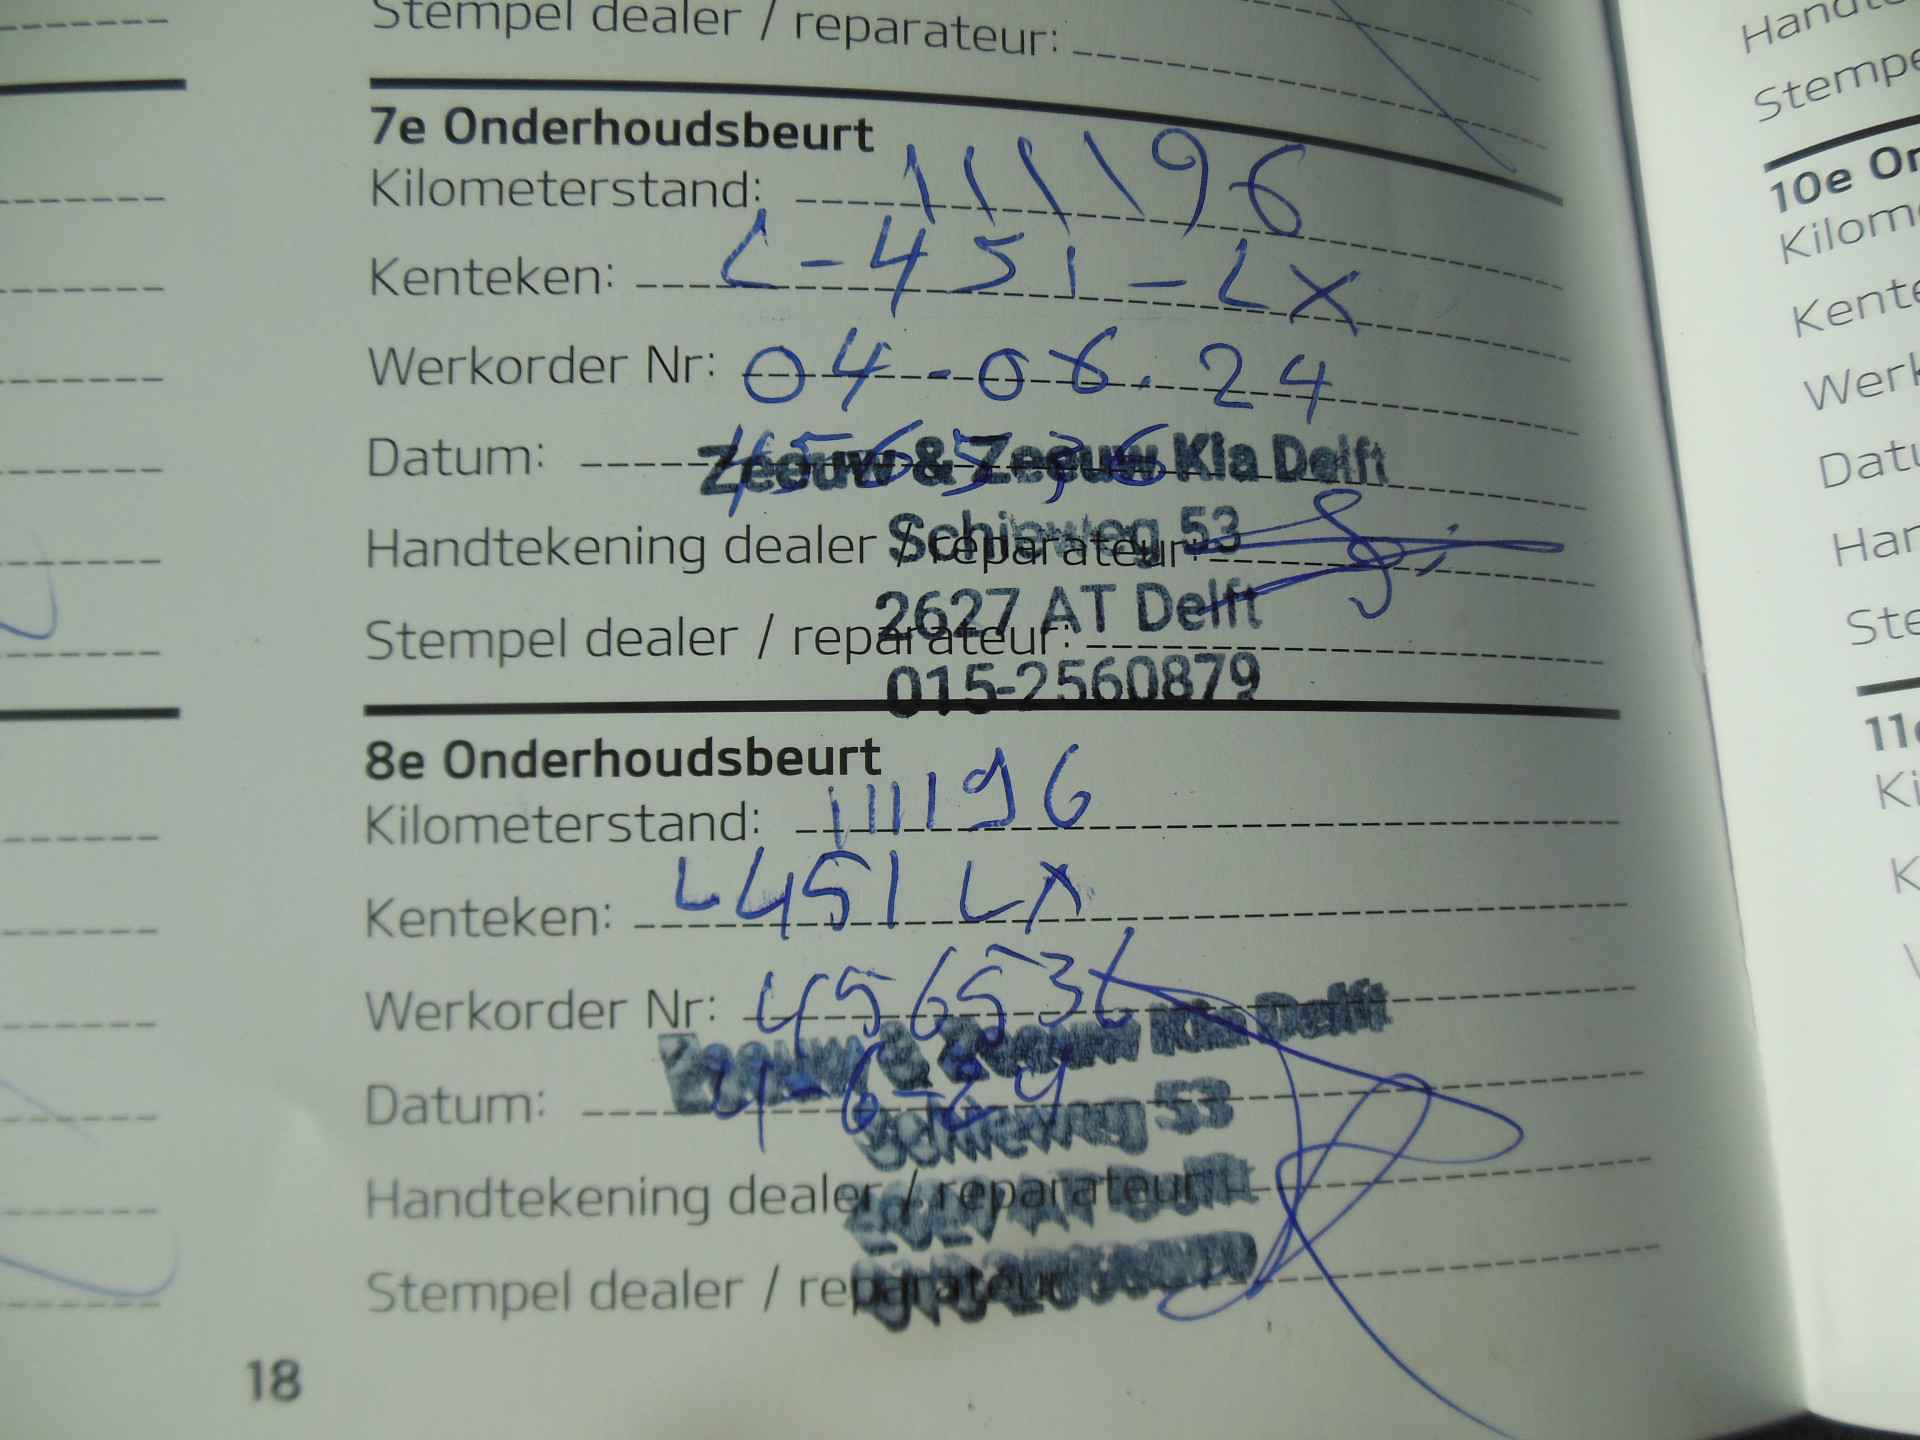 Stempel dealer / reparateur:
7e Onderhoudsbeurt
Kilometerstand: 111196
Kenteken: L-451-LX
Werkorder Nr: 04-06.24
Datum: 456536
Zeeuw & Zeeuw Kia Delft
Schieweg 53
Handtekening dealer / reparateur:
2627 AT Delft
Stempel dealer / reparateur:
015-2560879
8e Onderhoudsbeurt
Kilometerstand: 111196
Kenteken: L451 LX
Werkorder Nr: 456536
Zeeuw & Zeeuw Kia Delft
Datum: 4-6-24
Schieweg 53
Handtekening dealer / reparateur:
Stempel dealer / reparateur
18
10e
Kilom
Kente
Werk
Datu
Han
Ste